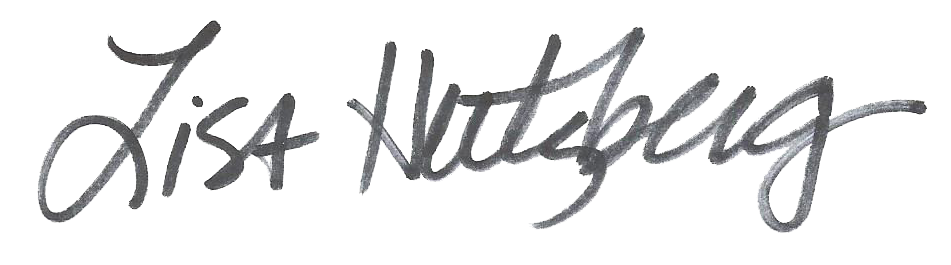 Lisa Hertzberg